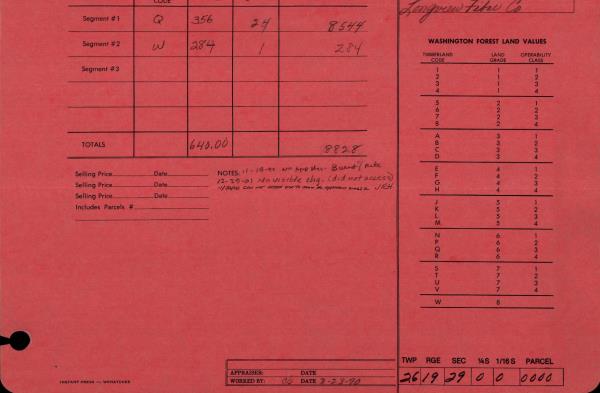 CODE
Segment #1 Q 356 24 8544
Segment #2 W 284 1 284
Segment #3
TOTALS 640.00 8828
Selling Price Date
Selling Price Date
Selling Price Date
Includes Parcels #
NOTES: 11-19-
12-29-01 No visible chg. (did not access)
JRH
INSTANT PRESS — WENATCHEE
APPRAISER: DATE
WORKED BY: DATE 8-23-90
Longview Fibre Co
WASHINGTON FOREST LAND VALUES
TIMBERLAND CODE LAND GRADE OPERABILITY CLASS
1 1 1
2 1 2
3 1 3
4 1 4
5 2 1
6 2 2
7 2 3
8 2 4
A 3 1
B 3 2
C 3 3
D 3 4
E 4 1
F 4 2
G 4 3
H 4 4
J 5 1
K 5 2
L 5 3
M 5 4
N 6 1
P 6 2
Q 6 3
R 6 4
S 7 1
T 7 2
U 7 3
V 7 4
W 8
TWP RGE SEC ¼S 1/16 S PARCEL
26 19 29 0 0 0000